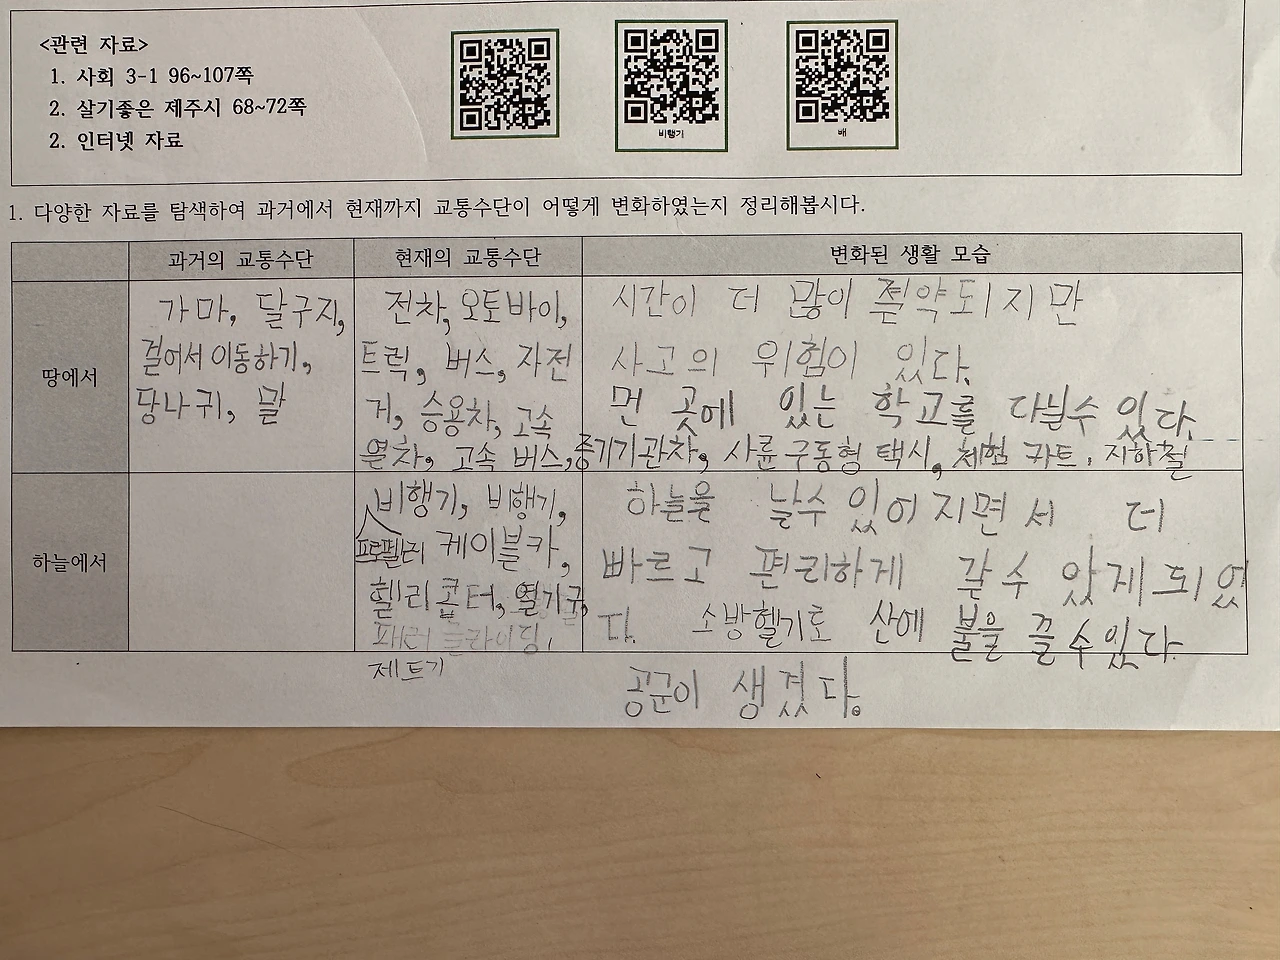 <관련 자료>
1. 사회 3-1 96~107쪽
2. 살기좋은 제주시 68~72쪽
2. 인터넷 자료
비행기
배
1. 다양한 자료를 탐색하여 과거에서 현재까지 교통수단이 어떻게 변화하였는지 정리해봅시다.
과거의 교통수단
현재의 교통수단
변화된 생활 모습
땅에서
가마, 달구지,
걸어서 이동하기,
당나귀, 말
전차, 오토바이,
트럭, 버스, 자전
거, 승용차, 고속
열차, 고속 버스, 증기기관차, 사륜 구동형 택시, 체험 카트, 지하철
시간이 더 많이 절약되지만
사고의 위험이 있다.
먼 곳에 있는 학교를 다닐수 있다.
하늘에서
비행기, 비행기,
프로펠러 케이블카,
헬리콥터, 열기구,
제트기
하늘을 날수 있어지면서 더
빠르고 편리하게 갈수 있게 되었
다. 소방헬기로 산에 불을 끌 수 있다.
공군이 생겼다.